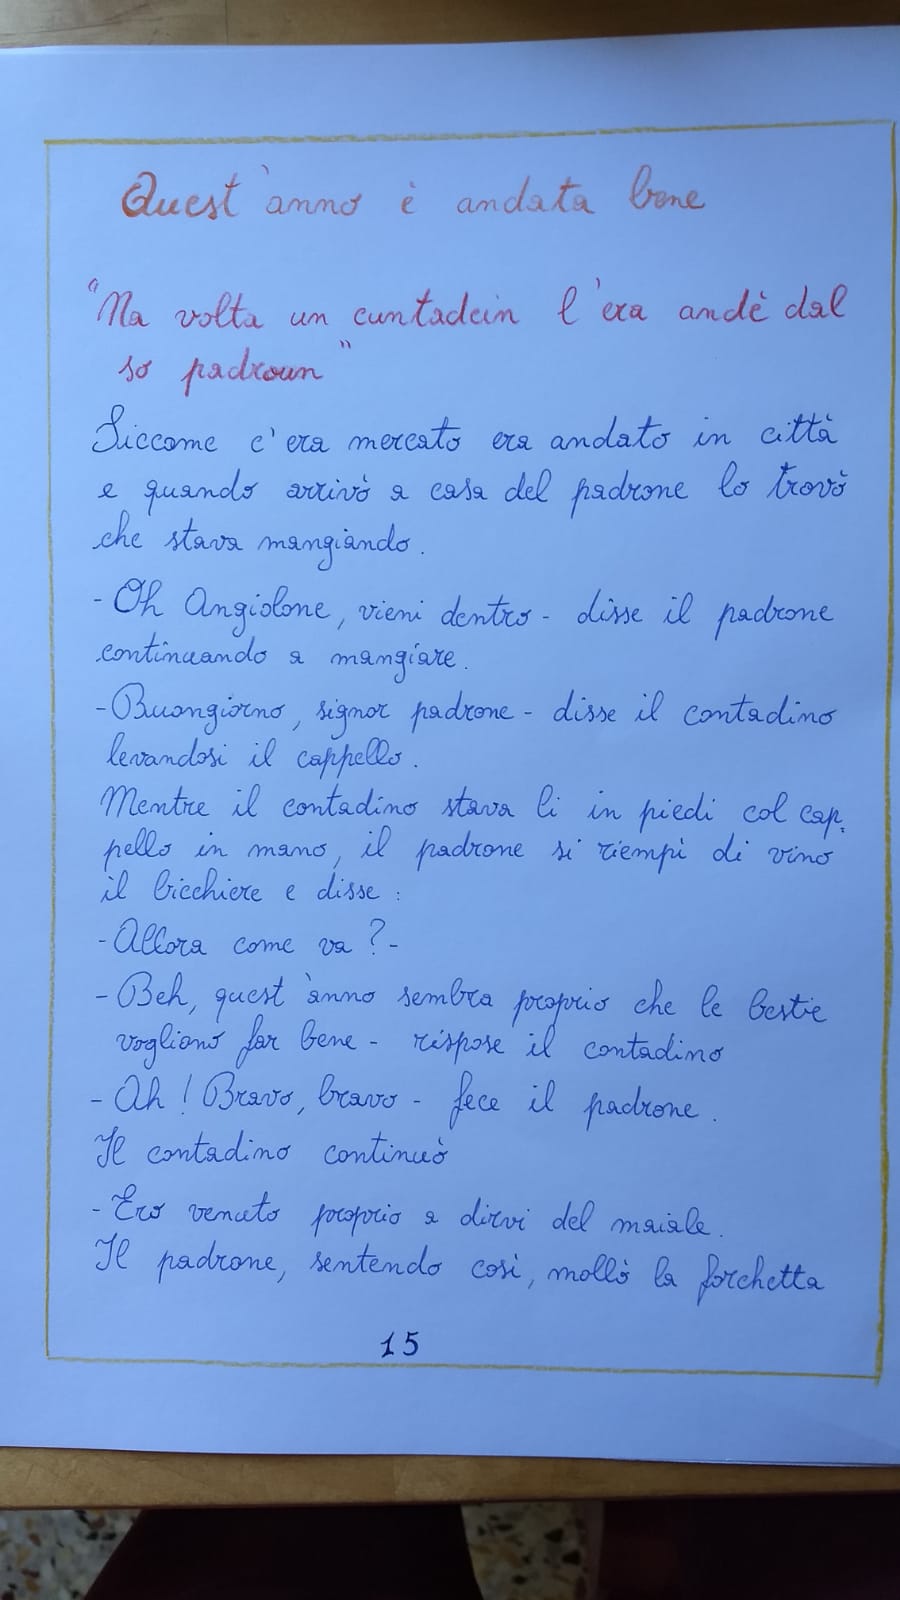 Quest'anno è andata bene
"Na volta un cuntadein l'era andè dal
so padroun"
Siccome c'era mercato era andato in città
e quando arrivò a casa del padrone lo trovò
che stava mangiando.
- Oh Angiolone, vieni dentro - disse il padrone
continuando a mangiare.
- Buongiorno, signor padrone - disse il contadino
levandosi il cappello.
Mentre il contadino stava lì in piedi col cap-
pello in mano, il padrone si riempì di vino
il bicchiere e disse:
- Allora come va? -
- Beh, quest'anno sembra proprio che le bestie
vogliono far bene - rispose il contadino
- Ah! Bravo, bravo - fece il padrone.
Il contadino continuò
- Ero venuto proprio a dirvi del maiale.
Il padrone, sentendo così, mollò la forchetta
15